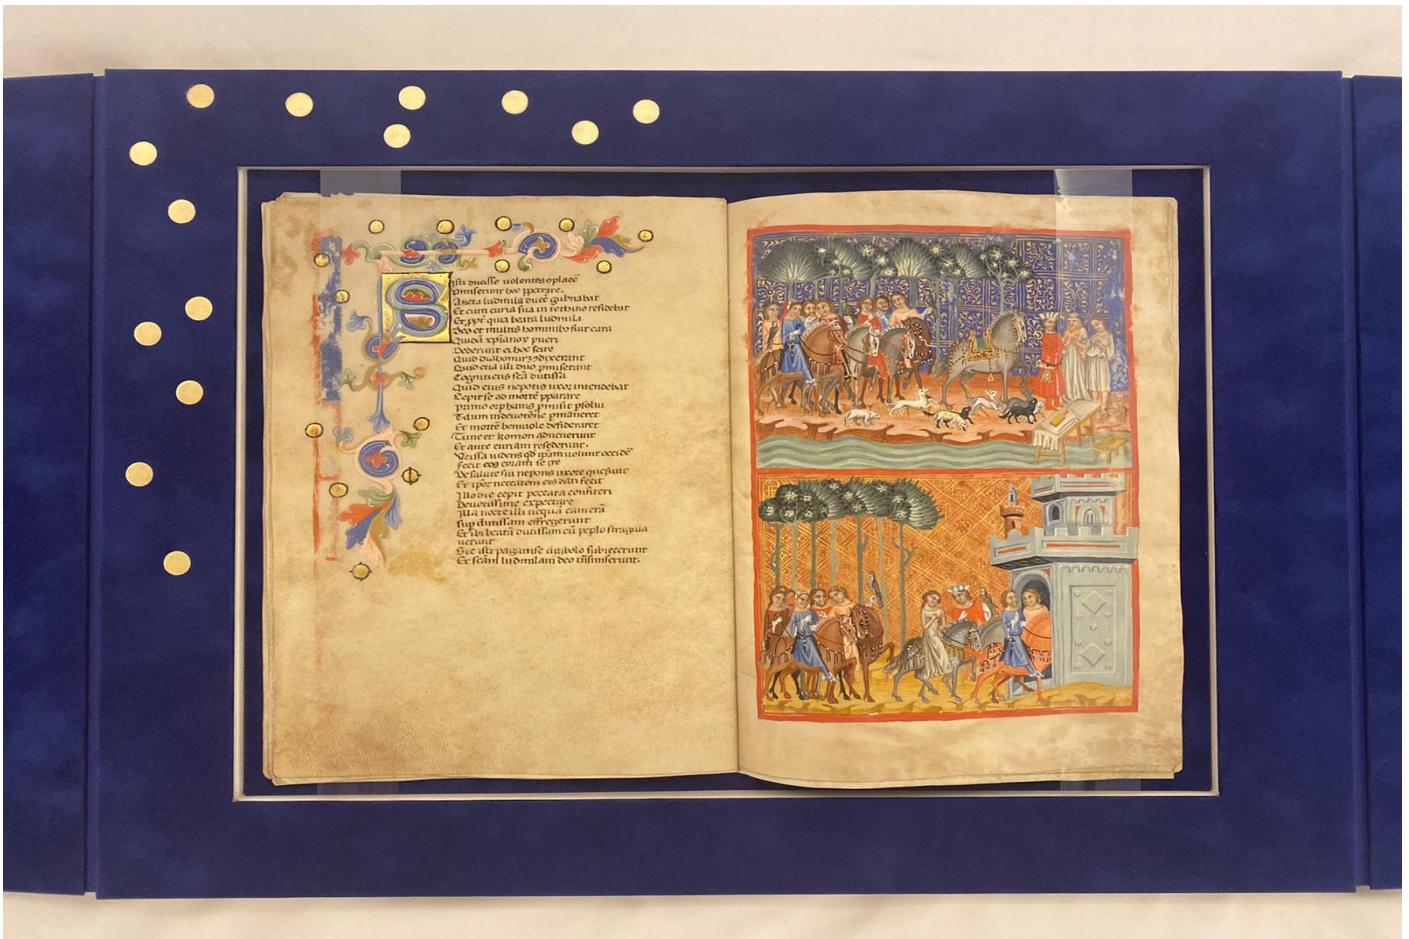 Isti ducisse uolentes cplacē
Pmiserunt hoc ppetrare.
Sancta ludmila ducē gubnabat
Et cum curia sua in tethino residebat
Et ppt quia beata ludmila
Deo et multis hominibꝫ fuit cara
Quidā xpianoꝝ pueri
Dederunt ei hoc scire
Quid dixerant
Quid eciā illi duo pmiserant
Cognitis eis scā ducissa
Quid eius nepotis uxor intendebat
Cepit se ad mortē pparare
primo orphanis pmisit psolui
in deuotione pmaneret
Et mortē beniuole desideraret
Tunc et komon aduenerunt
Et ante curiam resederunt.
uidens qd ipām uolunt occidē
fecit eos coram se ire
De salute sui nepotis uxore quesiuit
Et ipōꝝ necitatem eis dari fecit
Illo die cepit peccata confiteri
Deuotissime expectare
Illa nocte illi nequā camerā
sup ducissam effregerunt
Et ibi beatā ducissam cū peplo stragula
uerunt
Sic isti paganise dyabolo subiecerunt
Et scām ludmilam deo tnsmiserunt.